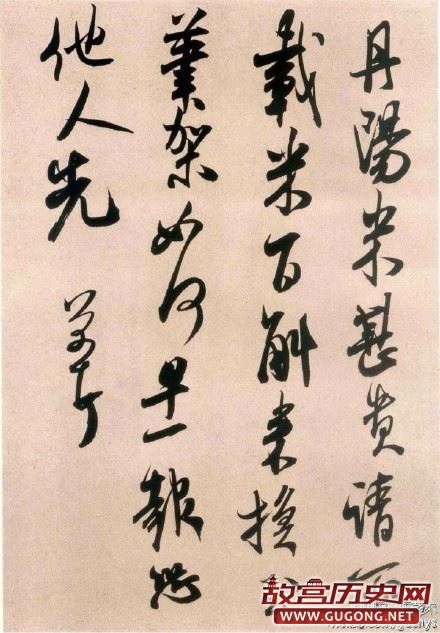 丹陽米甚貴請
載米百斛來換
筆架如何早一報恐
他人先 芾
故宫历史网
WWW.GUGONG.NET